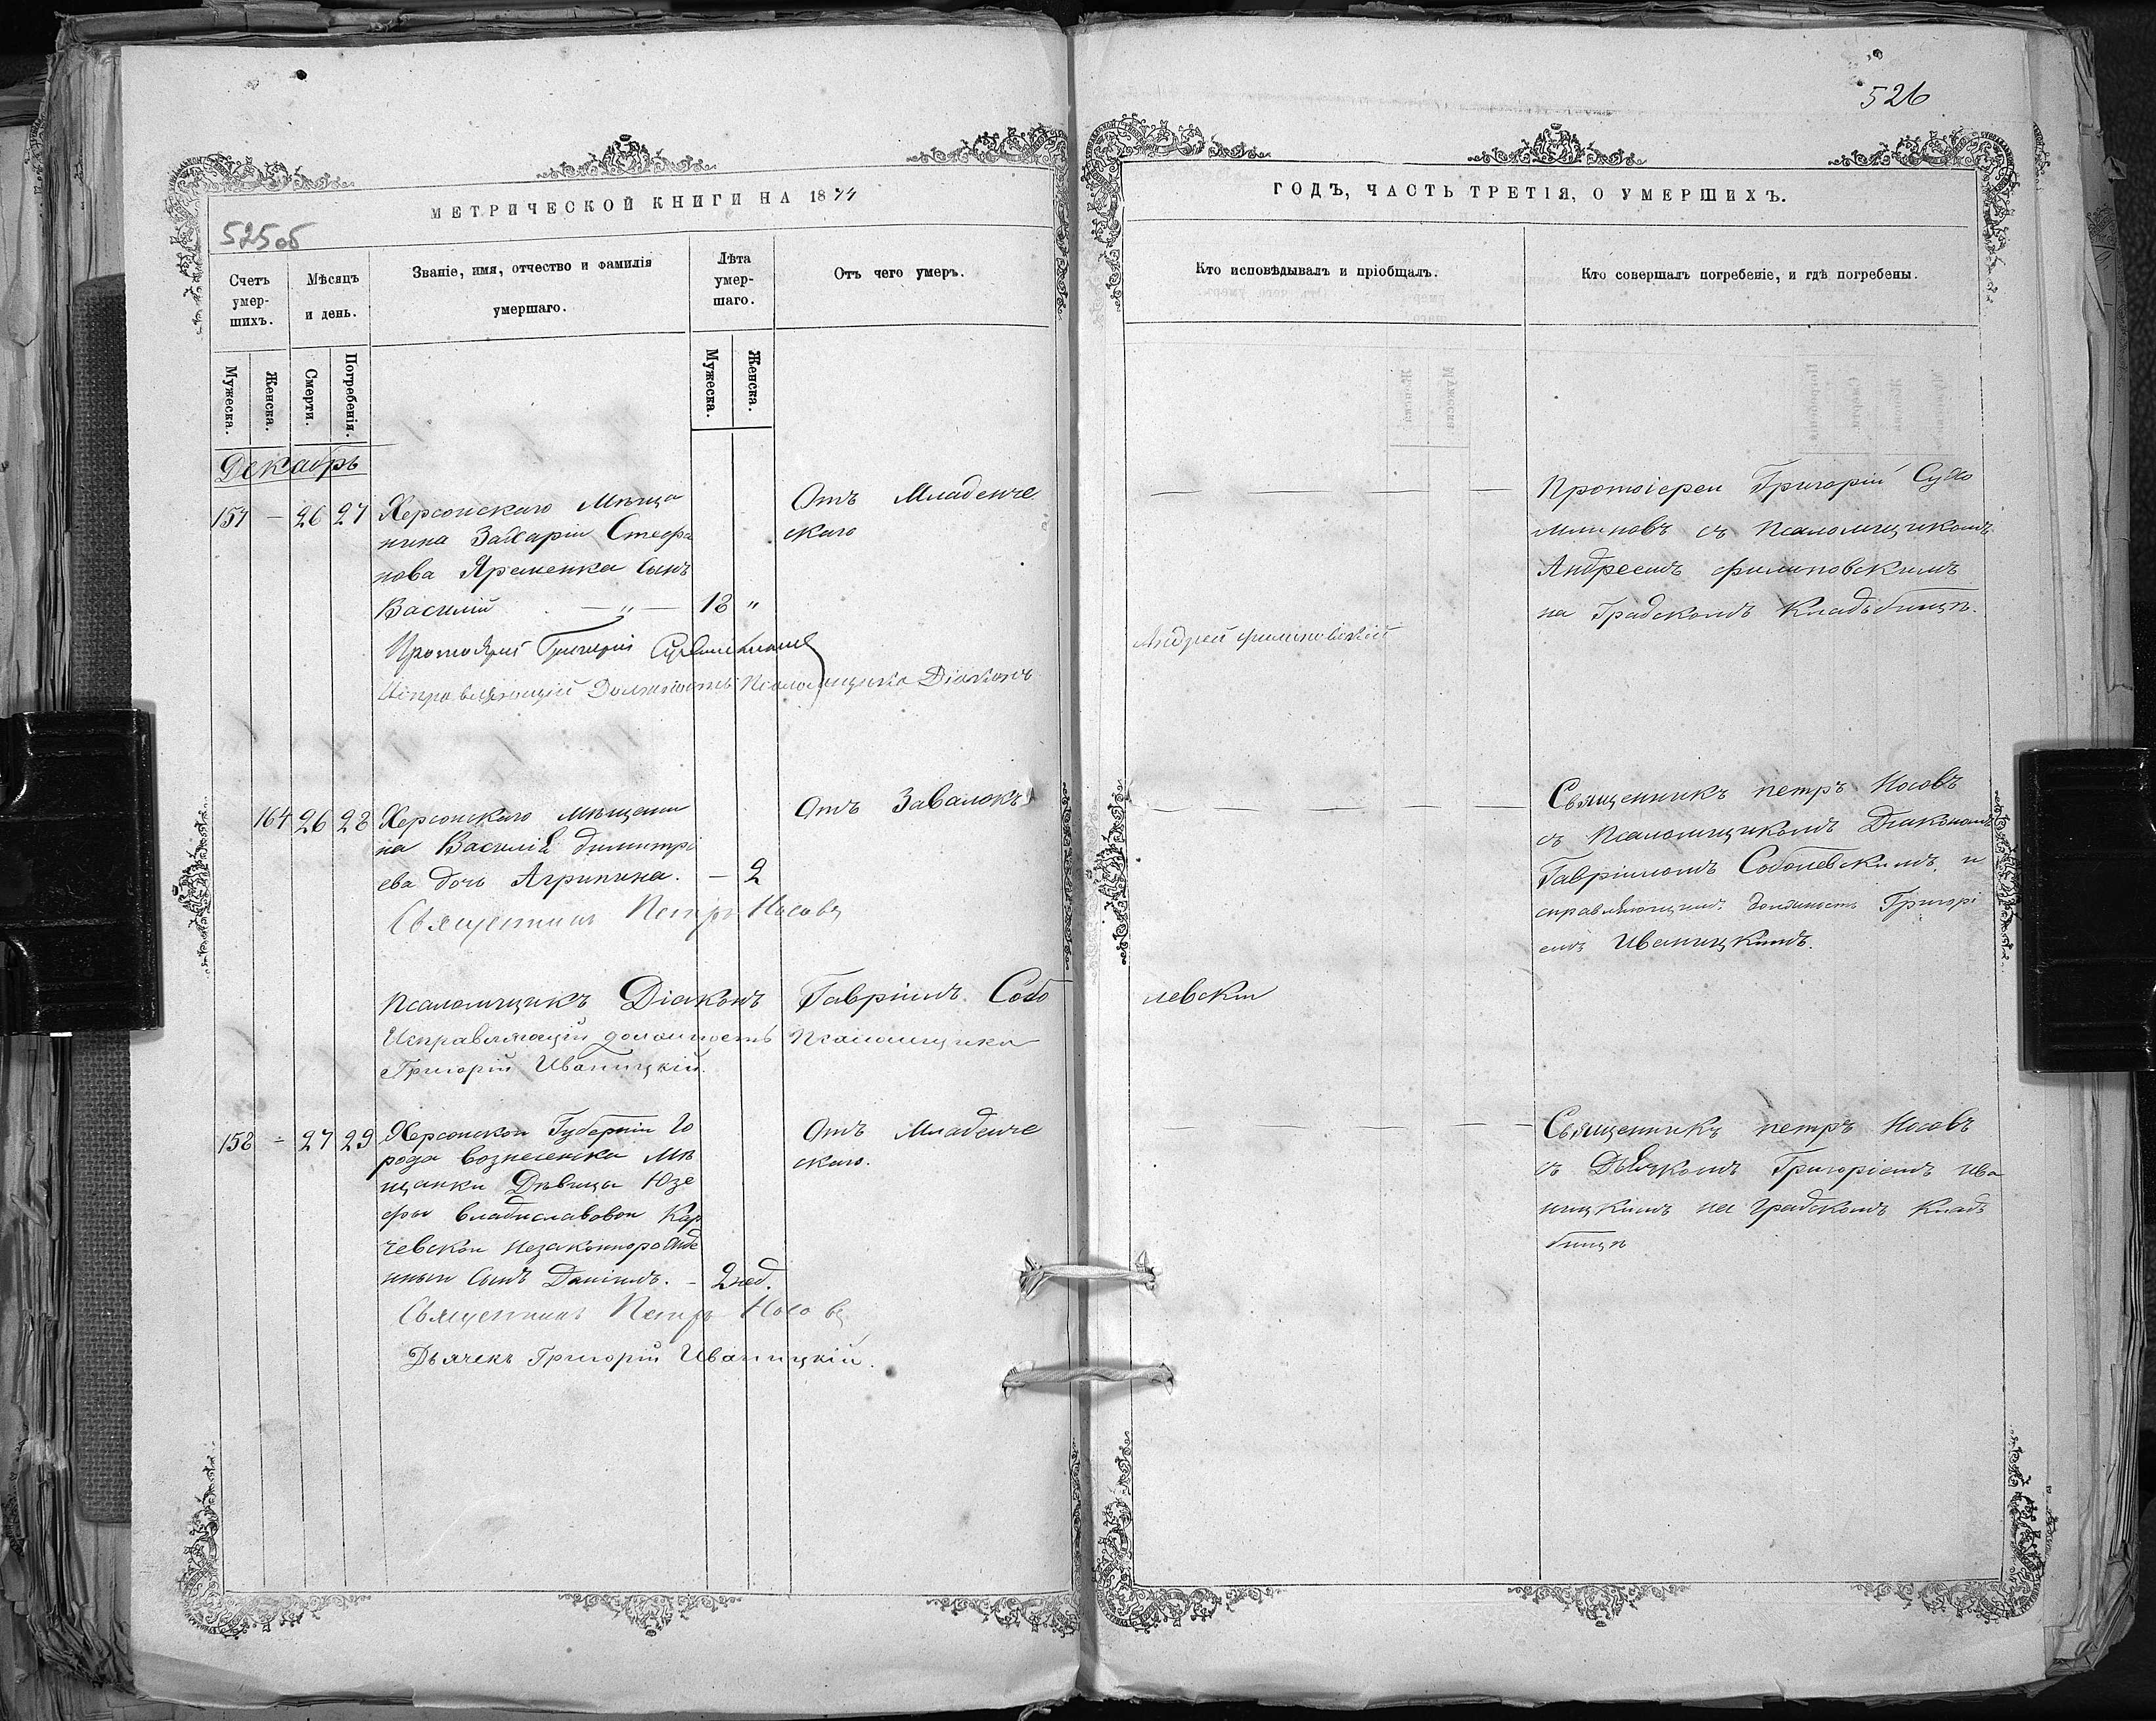 526
МЕТРИЧЕСКОЙ КНИГИ НА 1874
ГОДЪ, ЧАСТЬ ТРЕТІЯ, О УМЕРШИХЪ.
525об
Счетъ умер-шихъ.
Мѣсяцъ и день.
Званіе, имя, отчество и фамилія умершаго.
Лѣта умер-шаго.
Отъ чего умеръ.
Кто исповѣдывалъ и пріобщалъ.
Кто совершалъ погребеніе, и гдѣ погребены.
Мужеска.
Женска.
Смерти.
Погребенія.
Мужеска.
Женска.
Декабрь
157 — 26 27 Херсонскаго Мѣща
нина Захарія Стефа
нова Яременка Сынъ
Василій — „ — 18 „
Отъ Младенче
скаго
Протоіерей Григорій
с Псаломщикомъ
Андреемъ Филиповскимъ
на Градскомъ Кладьбищѣ.
Протоіерей Григорій
Исправляющій Должность Псаломщика Діаконъ
Андрей Филиповскій
164 26 28 Херсонскаго мѣщани
на Василія димитрі
ева дочь Агрипина. — 2
Отъ Завалокъ
Священникъ петръ Носовъ
съ Псаломщикомъ Діакономъ
Гавріиломъ Соболевскимъ, и
справляющимъ должность Григорі
емъ Иваницкимъ.
Священникъ Петръ Носовъ
Псаломщикъ Діаконъ Гавріилъ Собо
левскій
Исправляющій должность Псаломщика
Григорій Иваницкій.
158 - 27 29 Херсонской Губерніи Го
рода вознесенска Мѣ
щанки Дѣвицы Юзе
фы владиславовой Кар
чевской незаконнорожде
нный Сынъ Даніилъ. - 2 нед.
Отъ Младенче
скаго.
Священникъ петръ Носовъ
съ Дьячкомъ Григоріемъ ива
ницкимъ на градскомъ кладь
бищѣ
Священникъ Петръ Носовъ
Дьячекъ Григорій Иваницкій.